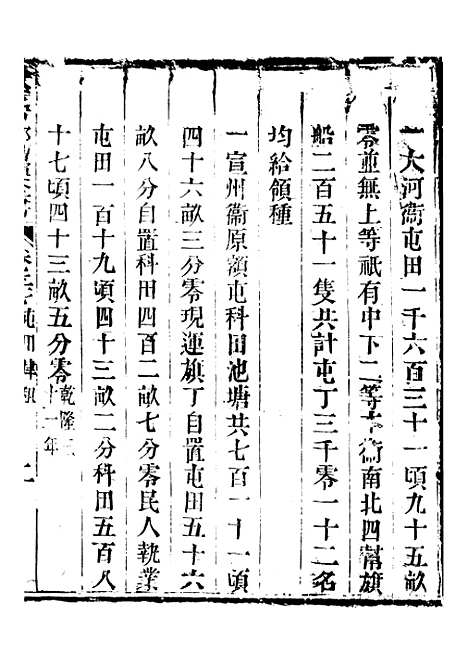 一大河衞屯田一千六百三十一頃九十五畝
零並無上等祇有中下二等本衞南北四幫旗
船二百五十一隻共計屯丁三千零一十二名
均給領種
一宣州衞原額屯科田池塘共七百一十一頃
四十六畝三分零現運旗丁自置屯田五十六
畝八分自置科田四百二畝七分零民人執業
屯田一百十九頃四十三畝二分科田五百八
十七頃四十三畝五分零乾隆三十一年